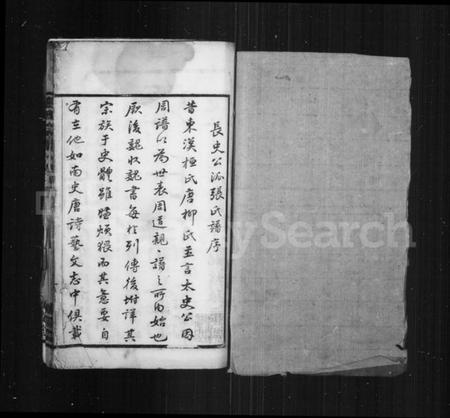 長史公派張氏譜序
昔東漢桓氏唐柳氏並言太史公因
周譜以為世表周道親親譜之所由始也
厥後魏收魏書每於列傳後附詳其
宗族于史體雖踳煩猥而其意要自
有在他如南史唐詩藝文志中俱載
Search